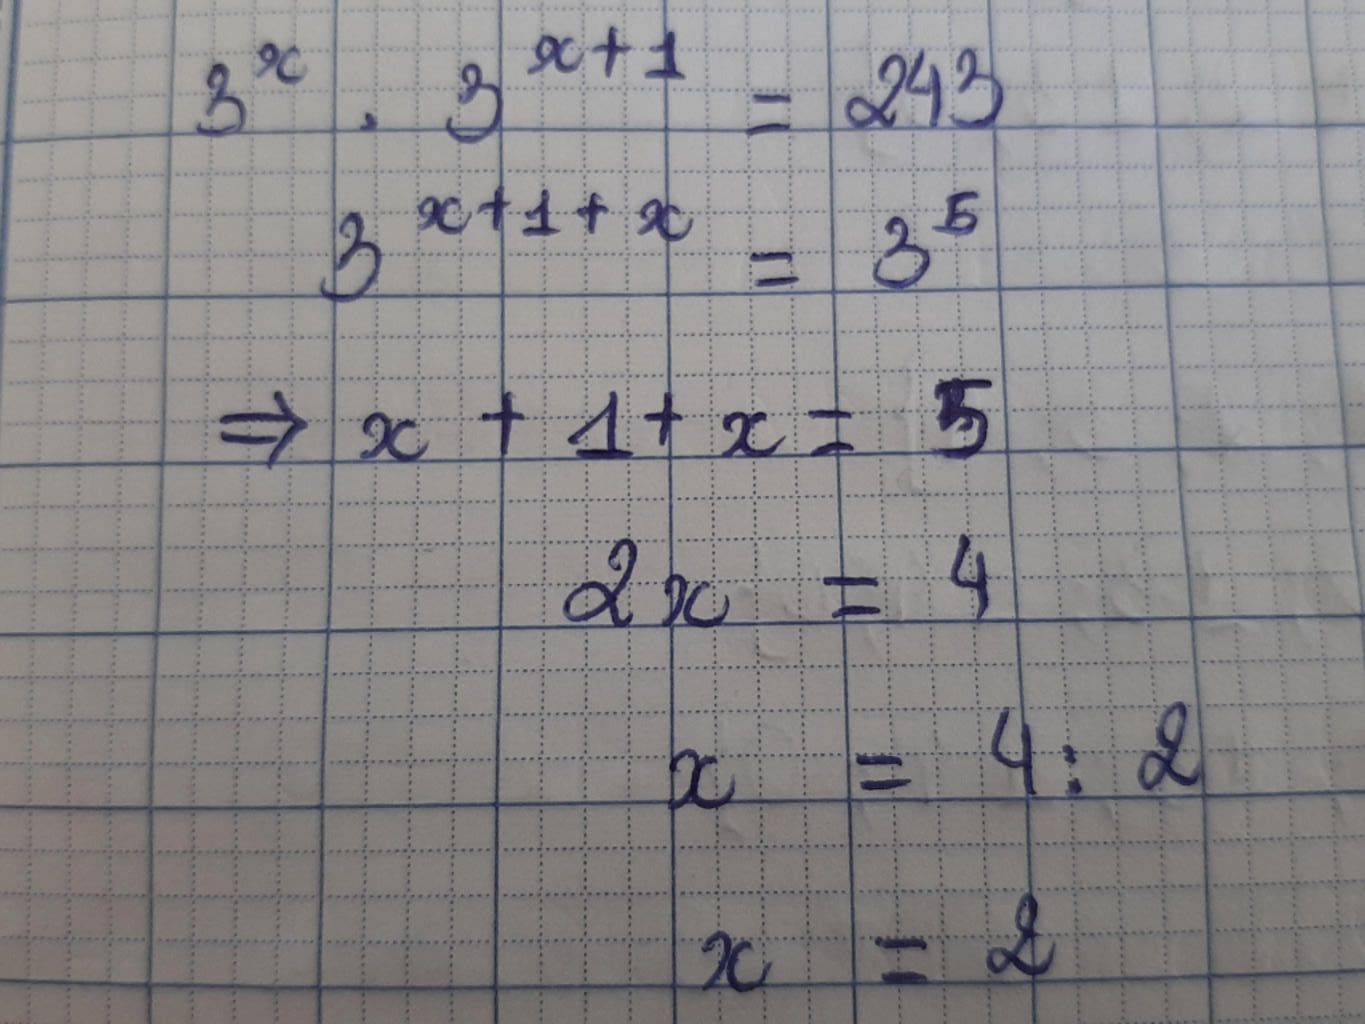 3^x . 3^{x+1} = 243
3^{x+1+x} = 3^5
⇒ x + 1 + x = 5
2x = 4
x = 4 : 2
x = 2